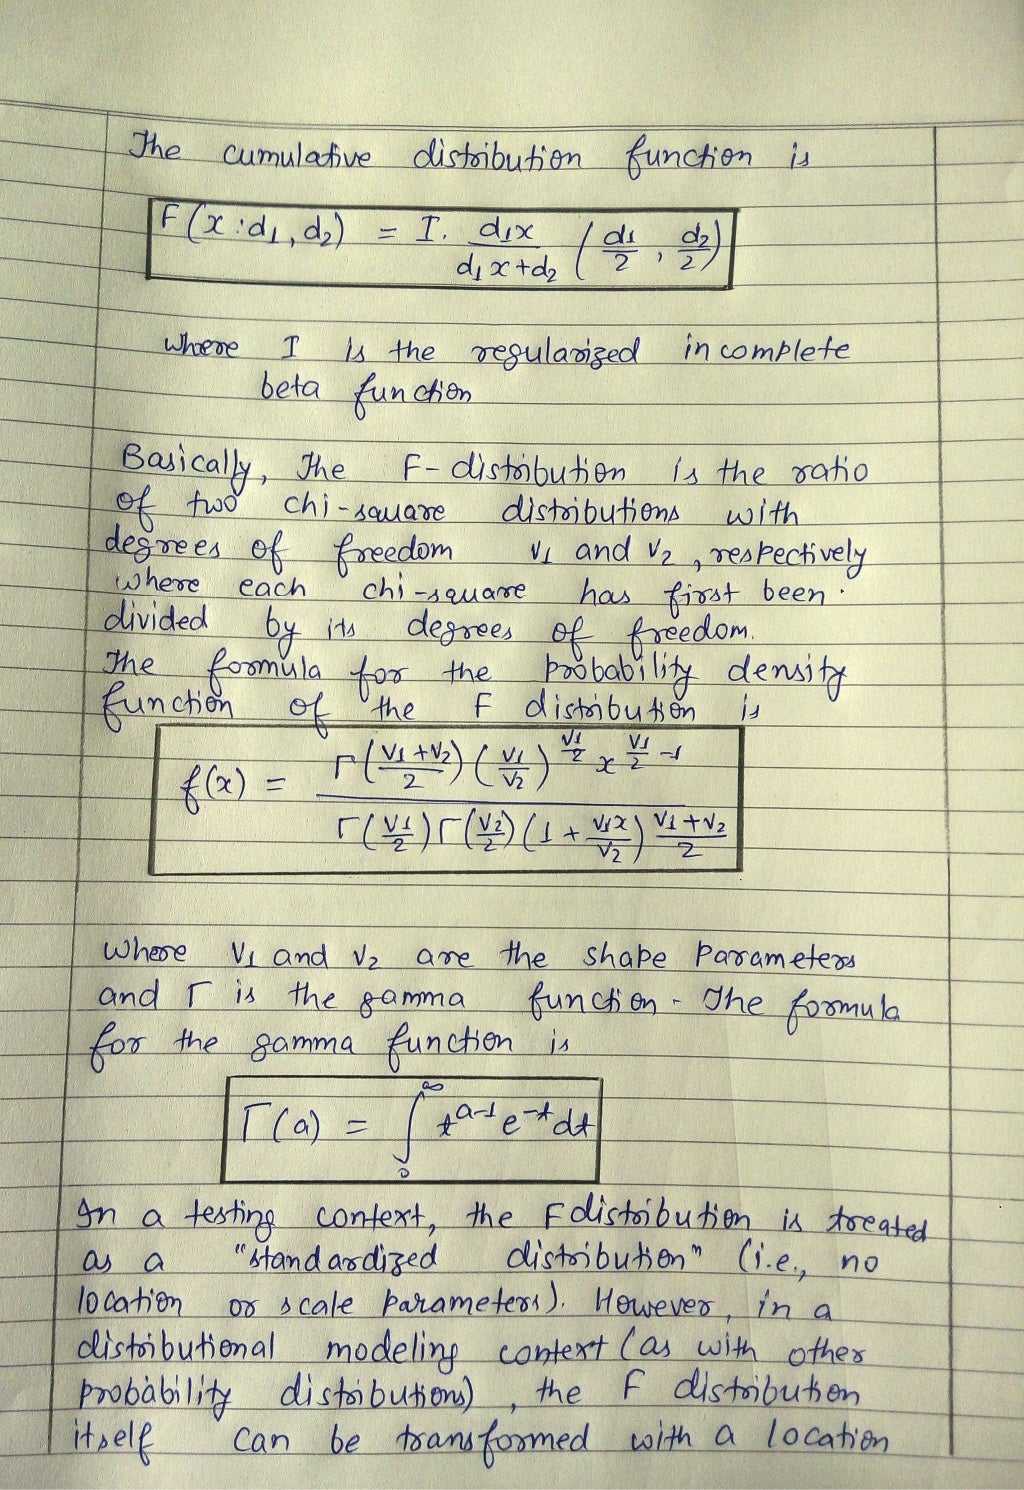 The cumulative distribution function is
F(x:d₁,d₂) = I. d₁x/d₁x+d₂ (d₁/2, d₂/2)
where I is the regularized incomplete
beta function
Basically, The F-distribution is the ratio
of two chi-square distributions with
degrees of freedom v₁ and v₂, respectively
where each chi-square has first been.
divided by its degrees of freedom.
The formula for the probability density
function of the F distribution is
f(x) = Γ(v₁+v₂/2) (v₁/v₂)^(v₁/2) x^(v₁/2 -1)
Γ(v₁/2) Γ(v₂/2) (1 + v₁x/v₂)^(v₁+v₂/2)
where v₁ and v₂ are the shape parameters
and Γ is the gamma function - The formula
for the gamma function is
Γ(a) = ∫₀^∞ t^(a-1) e^(-t) dt
In a testing context, the F distribution is treated
as a "standardized distribution" (i.e., no
location or scale parameters). However, in a
distributional modeling context (as with other
probability distributions), the F distribution
itself can be transformed with a location